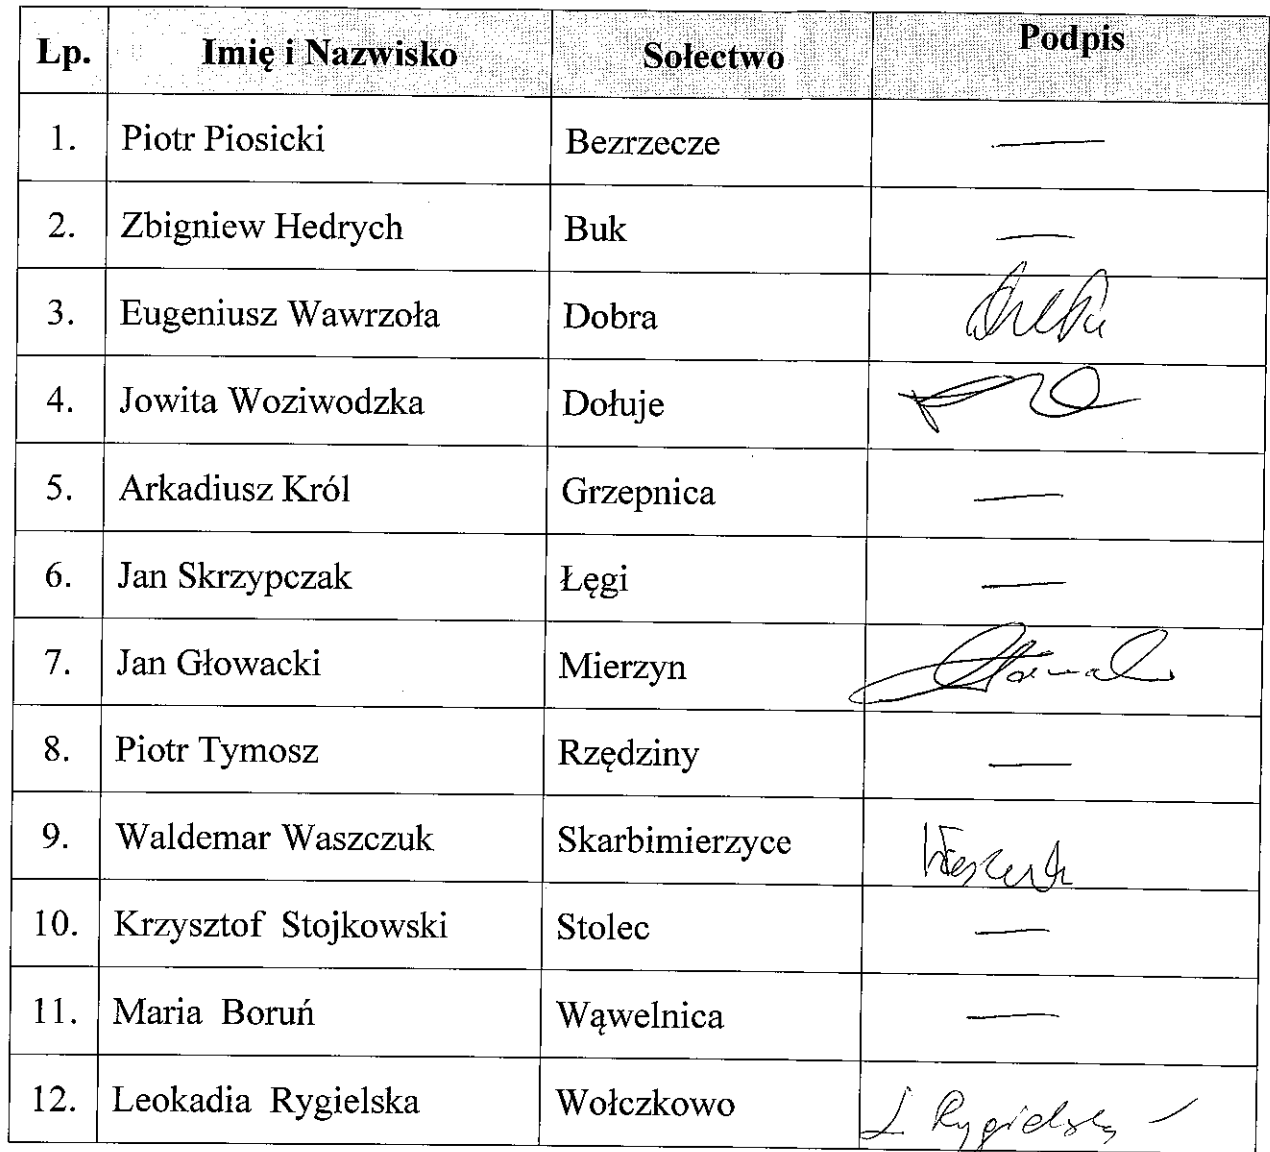 Lp. Imię i Nazwisko Sołectwo Podpis
1. Piotr Piosicki Bezrzecze —
2. Zbigniew Hedrych Buk —
3. Eugeniusz Wawrzoła Dobra
4. Jowita Woziwodzka Dołuje
5. Arkadiusz Król Grzepnica —
6. Jan Skrzypczak Łęgi —
7. Jan Głowacki Mierzyn
8. Piotr Tymosz Rzędziny —
9. Waldemar Waszczuk Skarbimierzyce
10. Krzysztof Stojkowski Stolec —
11. Maria Boruń Wąwelnica —
12. Leokadia Rygielska Wołczkowo L. Rygielska